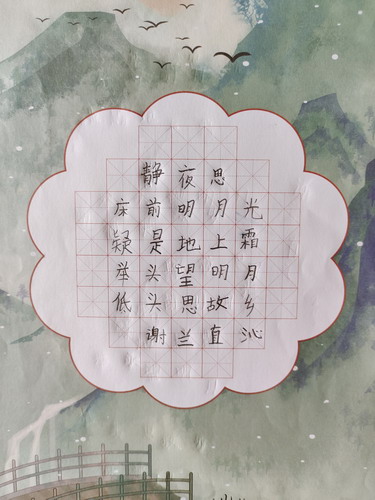 静夜思
床前明月光
疑是地上霜
举头望明月
低头思故乡
谢兰直沁